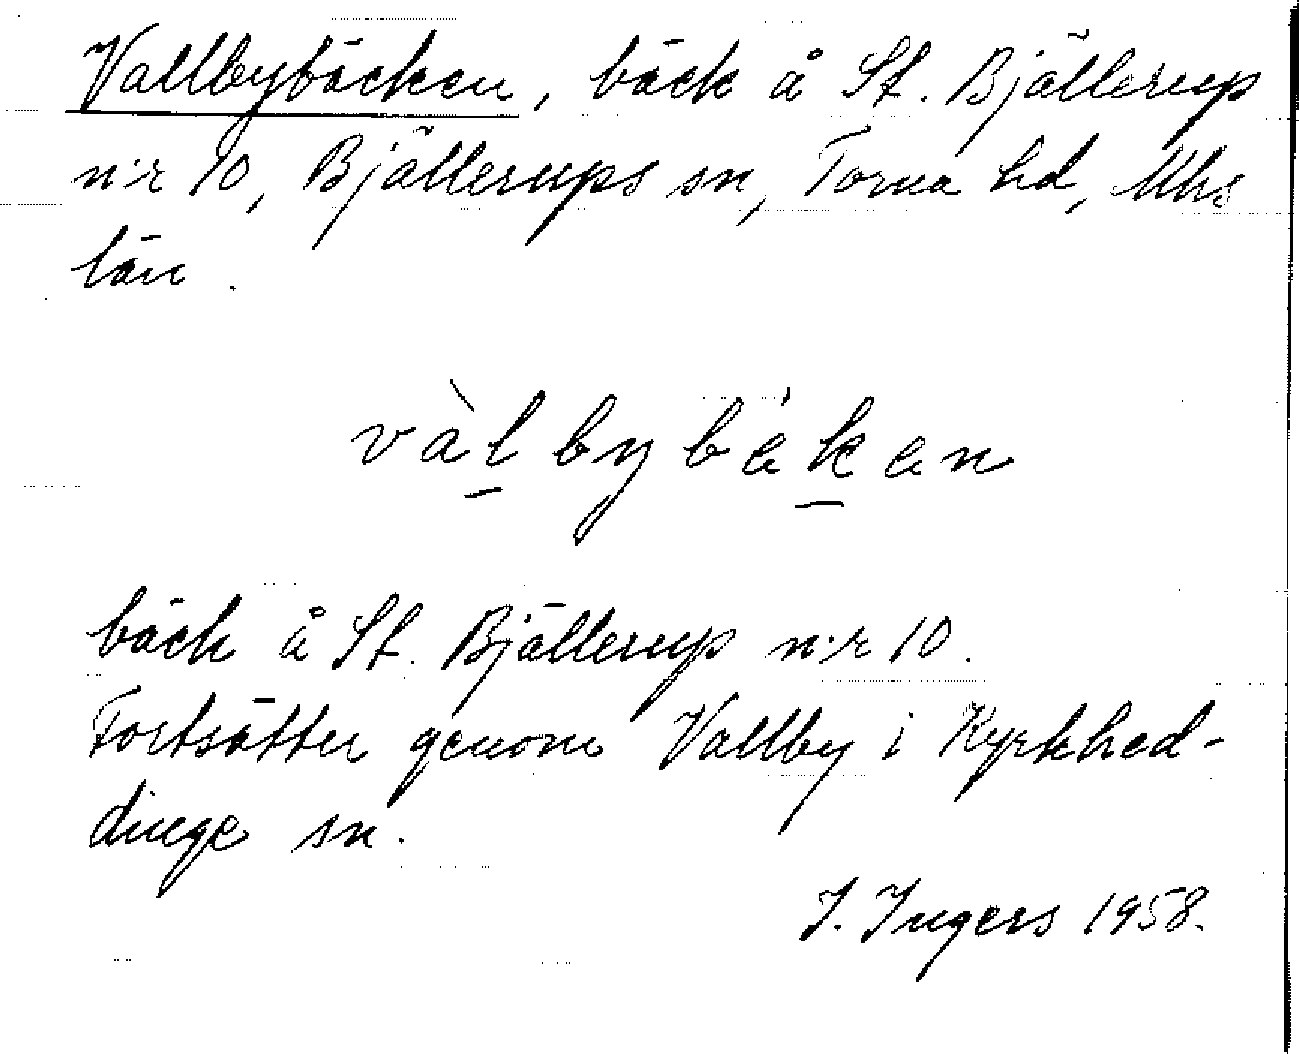 Vallbybäcken, bäck å St. Bjällerup
n:r 10, Bjällerups sn, Torna hd, Mhs
län.
vàl̲bybák̲an
bäck å St. Bjällerup n:r 10.
Fortsätter genom Vallby i Kyrkhed-
dinge sn.
I. Ingers 1958.